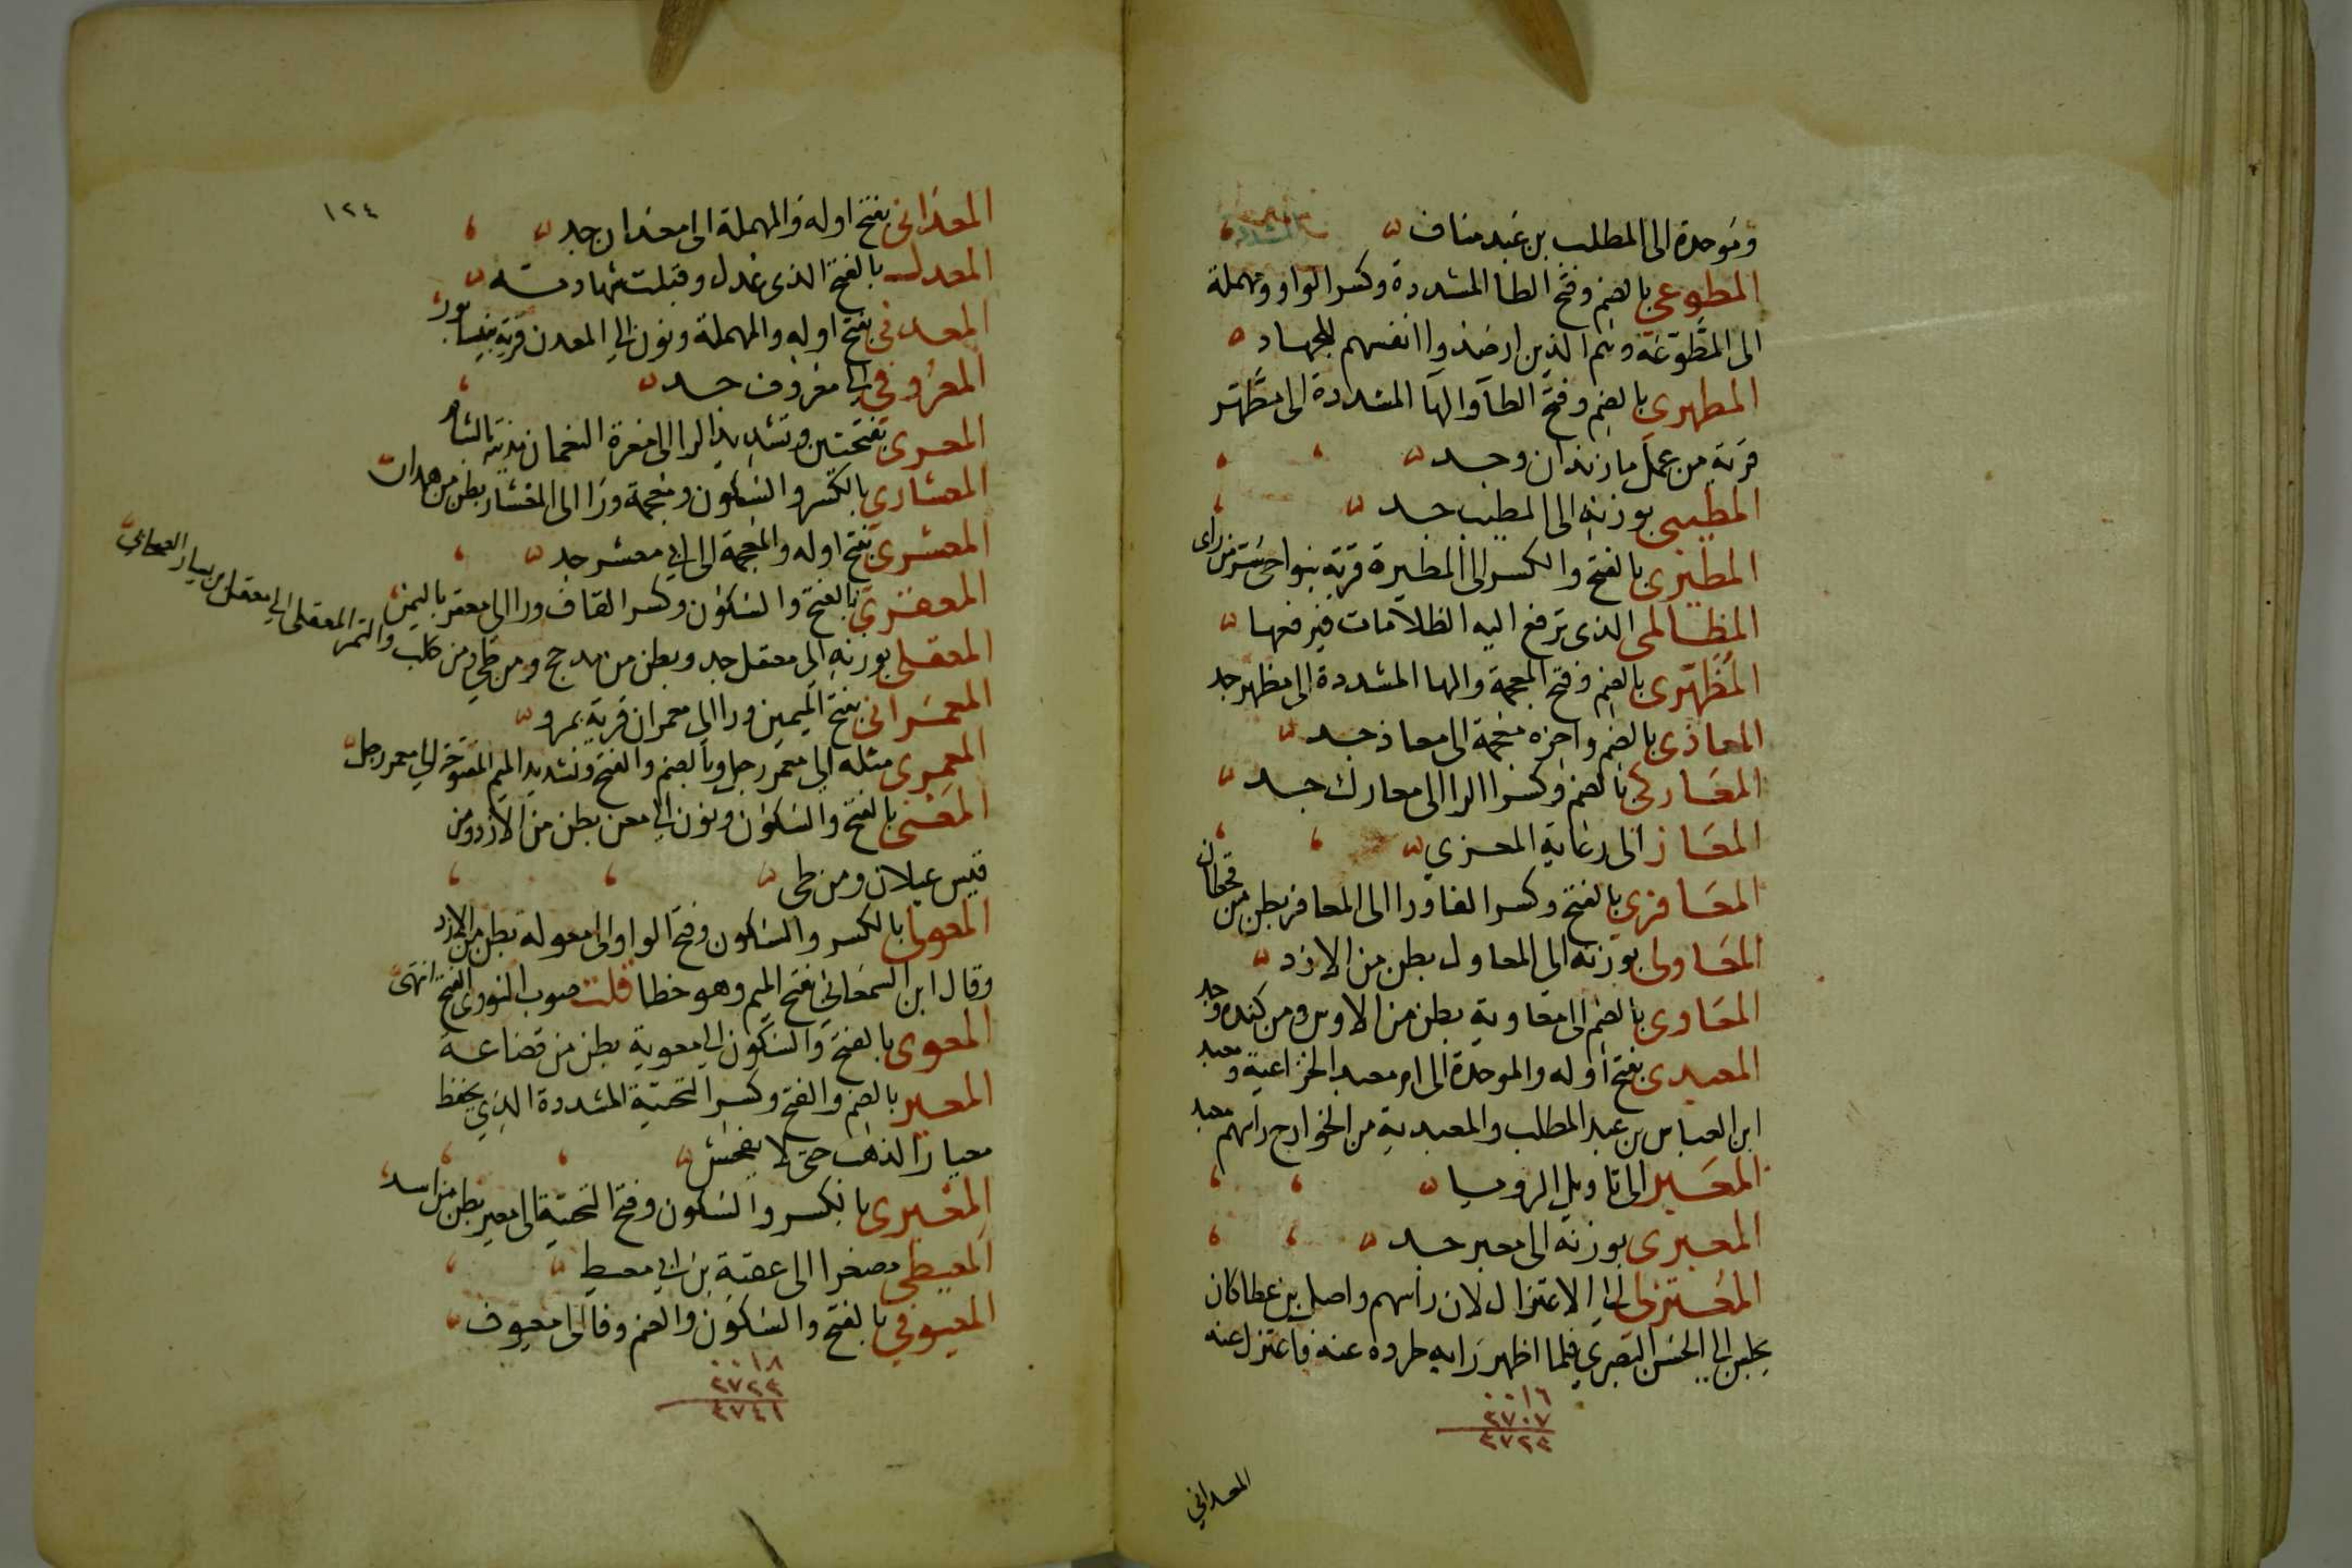 وموحدة الى المطلب بن عبد مناف
المطوعى بالضم وفتح الطا المشددة وكسر الواو ومهملة
الى المطوعة وهم الذين ارصدوا انفسهم للجهاد
المطهرى بالضم وفتح الطا والها المشددة الى مطهر
قرية من عمل مازندان وجد
المطيبى بوزنه الى المطيب جد
المطيرى بالفتح والكسر الى المطيرة قرية بنواحى سر من راى
المظالمى الذى ترفع اليه الظلامات فيرفعها
المظهرى بالضم وفتح المعجمة والها المشددة الى مظهر جد
المعاذى بالضم واخره معجمة الى معاذ جد
المعاركى بالضم وكسر الرا الى معارك جد
المعاز الى رعاية المعزي
المعافرى بالفتح وكسر الفا ورا الى المعافر بطن من قحطان
المعاولى بوزنه الى المعاول بطن من الازد
المعاوى بالضم الى معاوية بطن من الاوس ومن كنده وجد
المعبدى بفتح اوله والموحدة الى ام معبد الخزاعية ومعبد
ابن العباس بن عبد المطلب والمعبدية من الخوارج راسهم معبد
المعبر الى تاويل الرويا
المعبرى بوزنه الى معبر جد
المعتزلى الى الاعتزال لان راسهم واصل بن عطا كان
يجلس الى الحسن البصري فلما اظهر رايه طرده عنه فاعتزل عنه
٠٠١٦
٢٧٠٧
٢٧٢٤
المعدانى
١٢٤
المعدانى بفتح اوله والمهملة الى معدان جد
المعدل بالفتح الذى عدل وقبلت شهادته
المعدنى بفتح اوله والمهملة ونون الى المعدن قرية بنيسابور
المعروفى الى معروف جد
المعرى بفتحتين وتشديد الرا الى معرة النعمان مدينة بالشام
المعشارى بالكسر والسكون ومعجمة ورا الى المعشار بطن من همدان
المعشرى بفتح اوله والمعجمة الى ابى معشر جد
المعقرى بالفتح والسكون وكسر القاف ورا الى معقر باليمن
المعقلى بوزنه الى معقل جد وبطن من مدحج ومن طي ومن كلب والتمر المعقلى الى معقل بن يسار الصحابي
المعمرانى بفتح الميمين ورا الى معمران قرية بمرو
المعمرى مثله الى معمر رجل وبالضم والفتح وتشديد الميم المفتوحة الى معمر رجل
المعنى بالفتح والسكون ونون الى معن بطن من الازد ومن
قيس عيلان ومن طى
المعولى بالكسر والسكون وفتح الواو الى معولة بطن من الازد
وقال ابن السمعانى بفتح الميم وهو خطا قلت صوب النووى الفتح انتهى
المعوى بالفتح والسكون الى معوية بطن من قضاعة
المعير بالضم والفتح وكسر التحتية المشددة الذي يحفظ
معيار الذهب حتى لا يغش
المعيرى بالكسر والسكون وفتح التحتية الى معير بطن من اسد
المعيطى مصغرا الى عقبة بن ابى معيط
المعيوفى بالفتح والسكون والضم وفا الى معيوف
٠٠١٨
٢٧٢٤
٢٧٤١